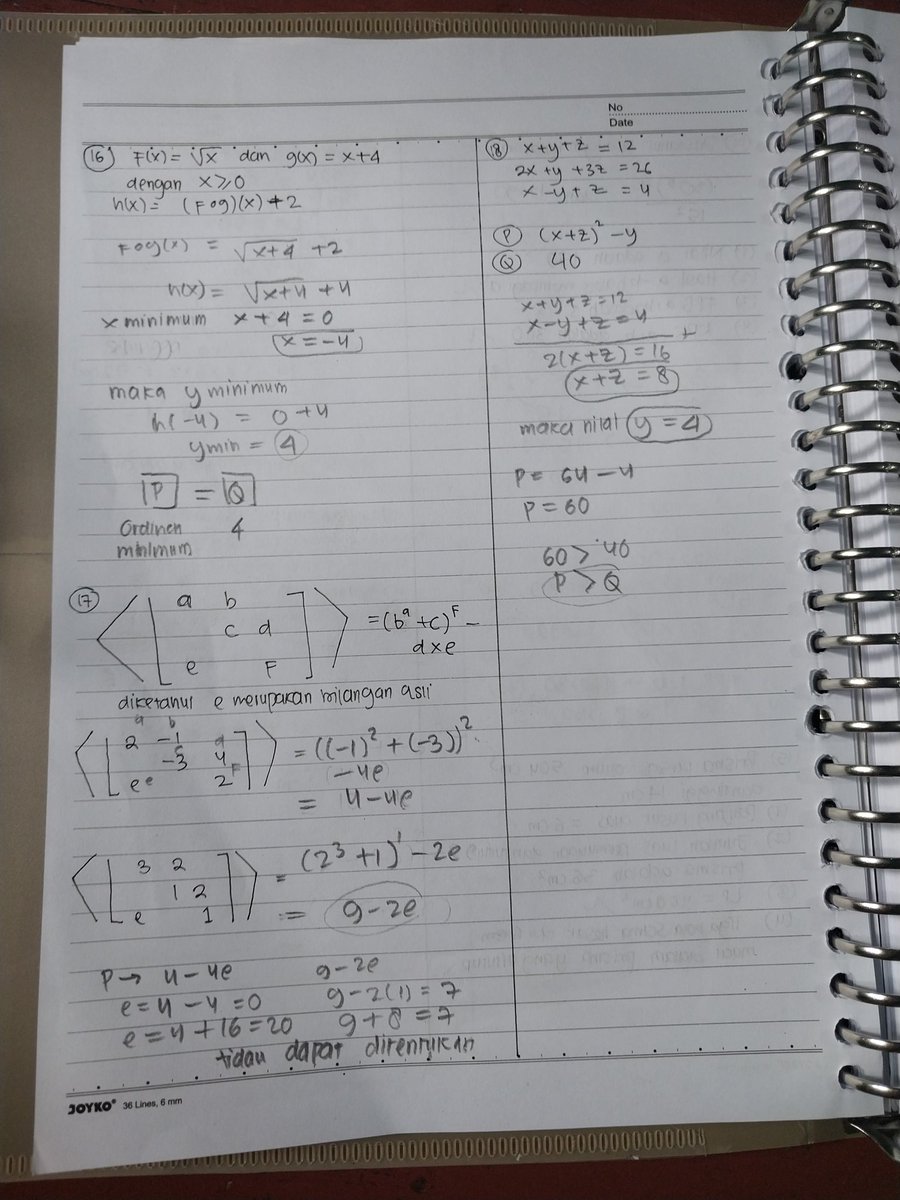 No
Date
(16) F(x) = √x dan g(x) = x+4
dengan x ≥ 0
h(x) = (Fog)(x) + 2
Fog(x) = √x+4 + 2
h(x) = √x+4 + 4
x minimum x + 4 = 0
x = -4
maka y minimum
h(-4) = 0 + 4
ymin = 4
P = Q
Ordinen 4
minimum
(17) a b
c d = (b^a + c)^F -
d x e
e F
diketahui e merupakan bilangan asli
a b
2 -1 d = ((-1)² + (-3))²
c
-3 4 -4e
e e 2 F = 4-4e
3 2 = (2³ + 1)¹ - 2e
1 2
e 1 = 9-2e
P → 4 - 4e 9-2e
e = 4 - 4 = 0 9-2(1) = 7
e = 4 + 16 = 20 9 + 8 = 7
tidak dapat ditentukan
(18) x+y+z = 12
2x+y+3z = 26
x-y+z = 4
(P) (x+z)² - y
(Q) 40
x+y+z = 12
x-y+z = 4
+
2(x+z) = 16
x+z = 8
maka nilai y = 4
P = 64 - 4
P = 60
60 > 40
P > Q
JOYKO® 36 Lines, 6 mm